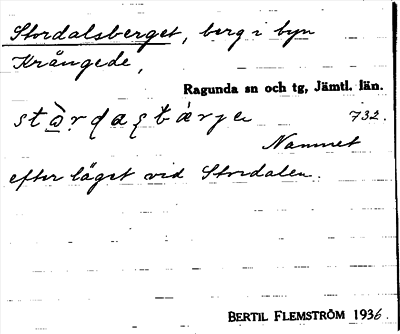 Stordalsberget, berg i byn
Krångede,
Ragunda sn och tg, Jämtl. län.
732.
Namnet
efter läget vid Stordalen.
BERTIL FLEMSTRÖM 1936.